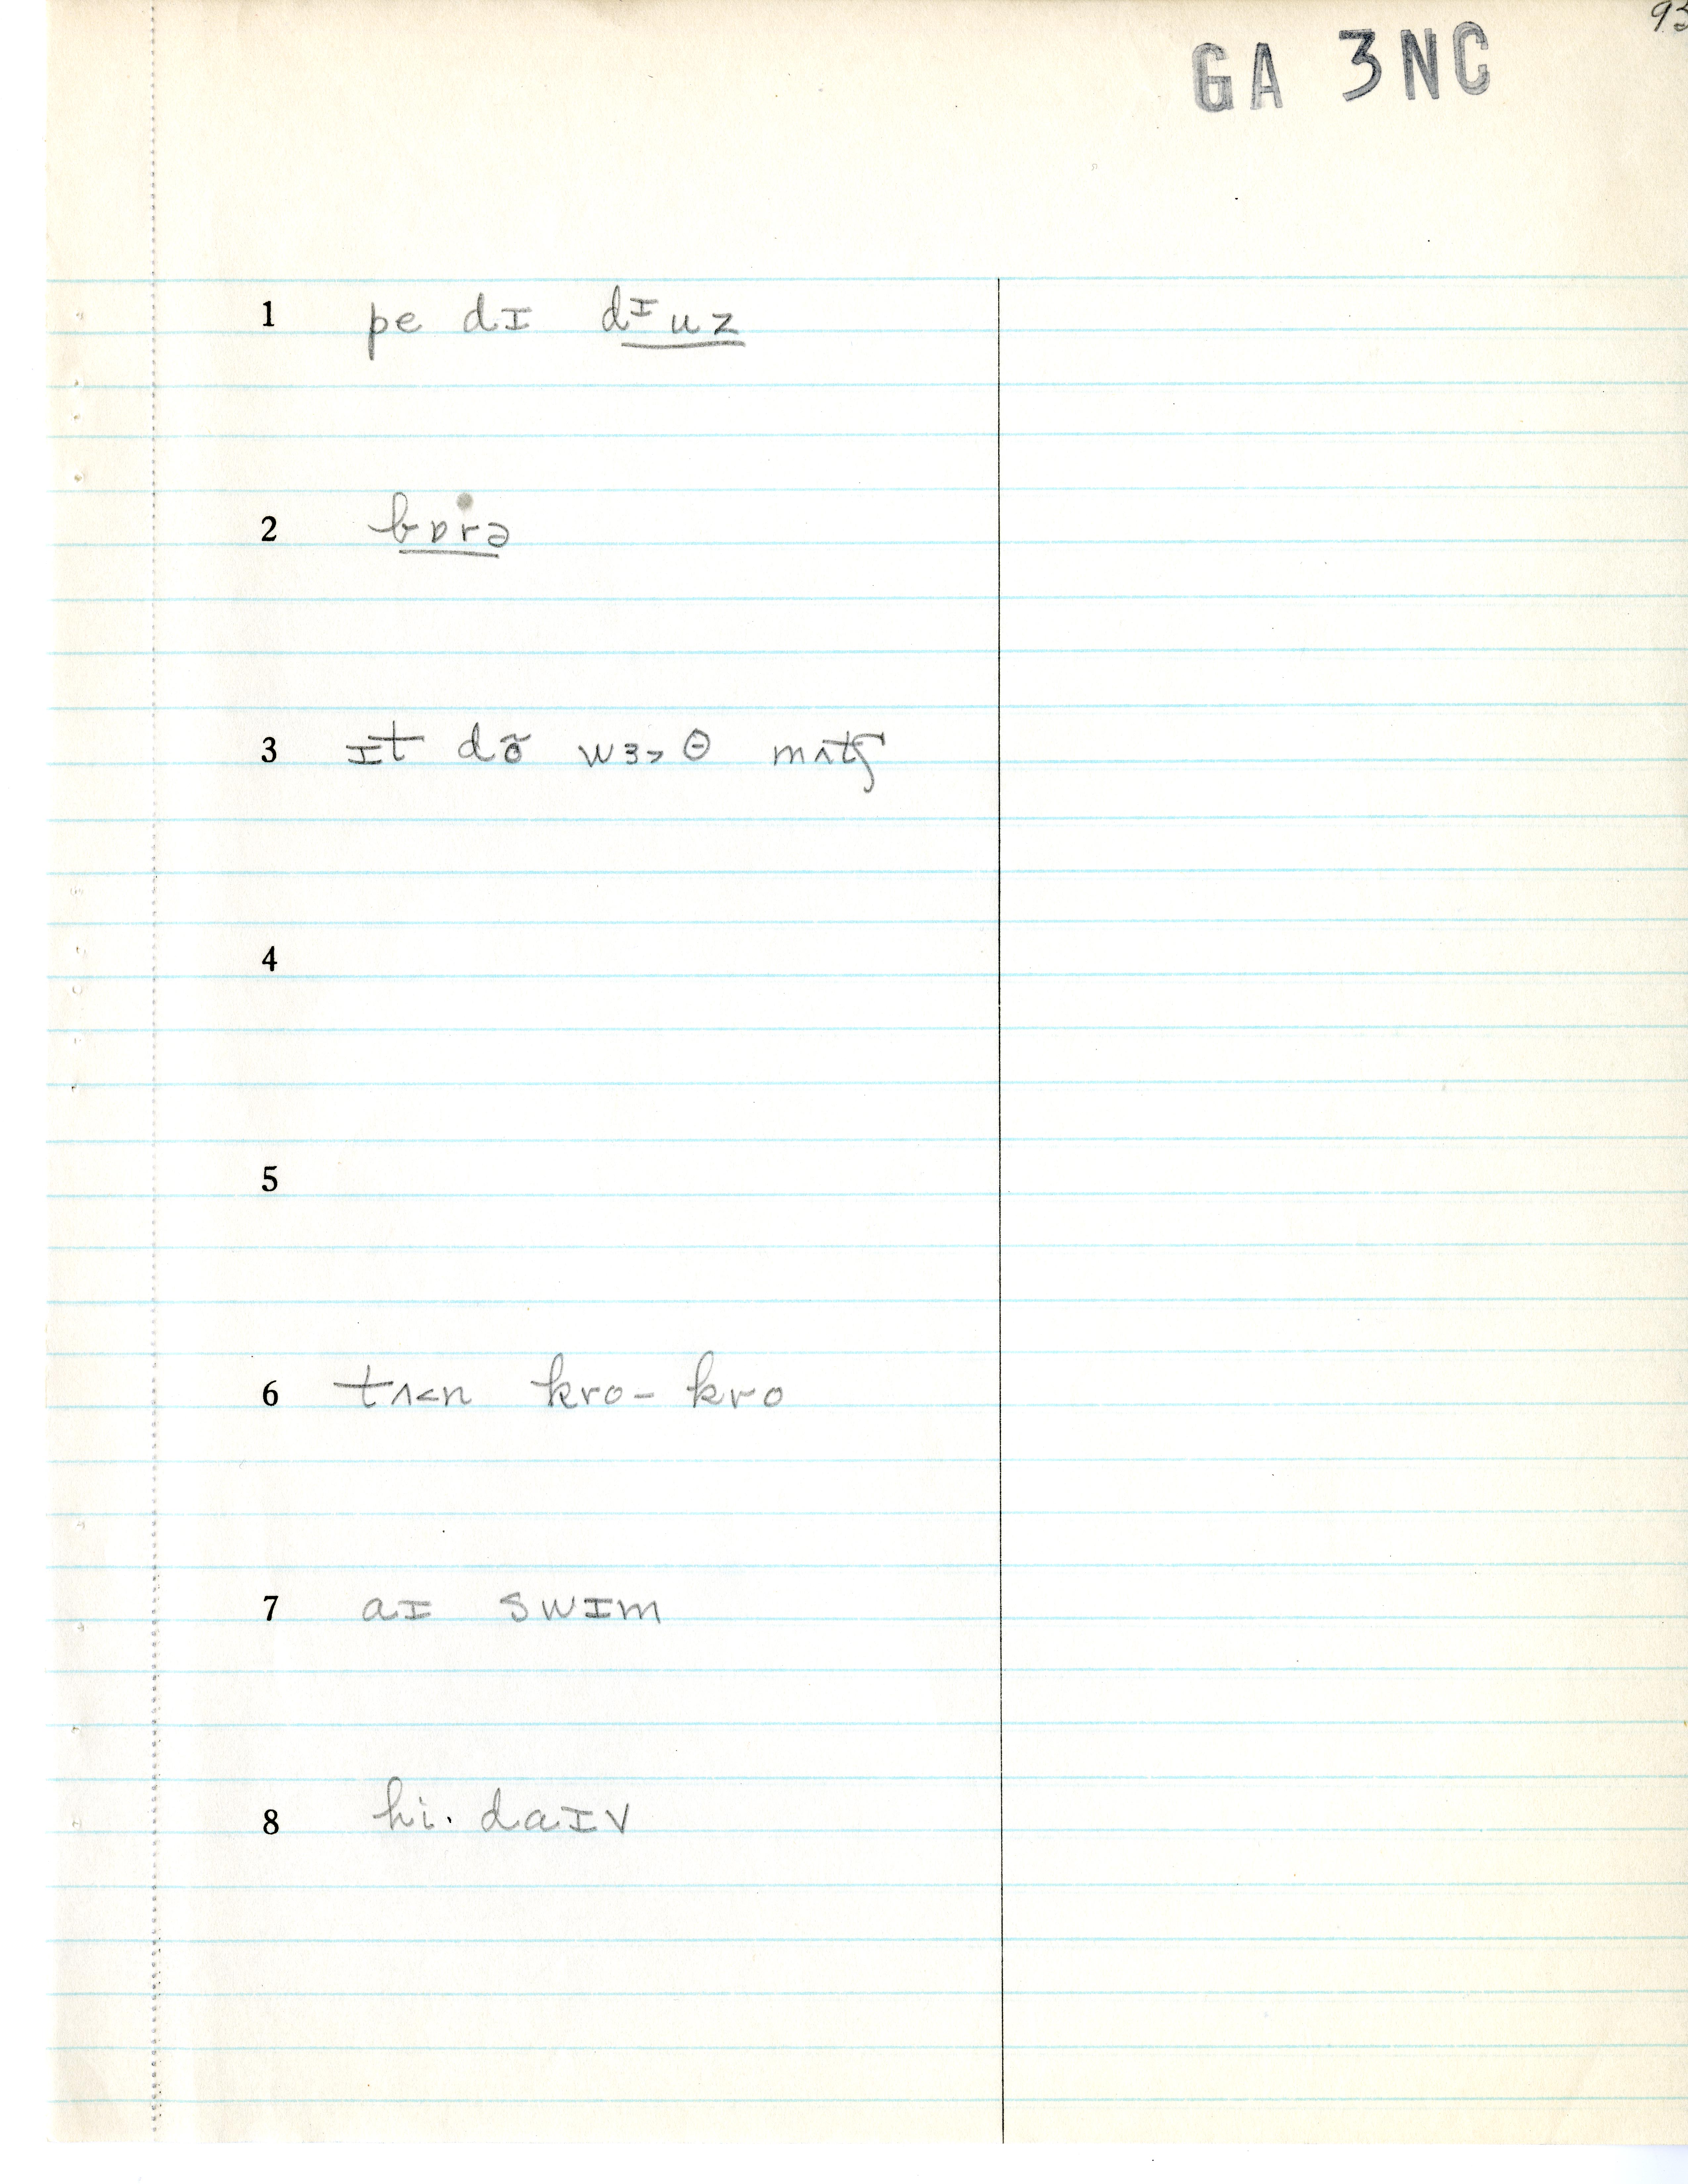 93
GA 3NC
1 pe dɪ dᶦuz
2 bɒrə
3 ɪt dõ wɜ˃θ mʌtʃ
4
5
6 tʌ˂n kro-kro
7 aɪ swɪm
8 hi· daɪv